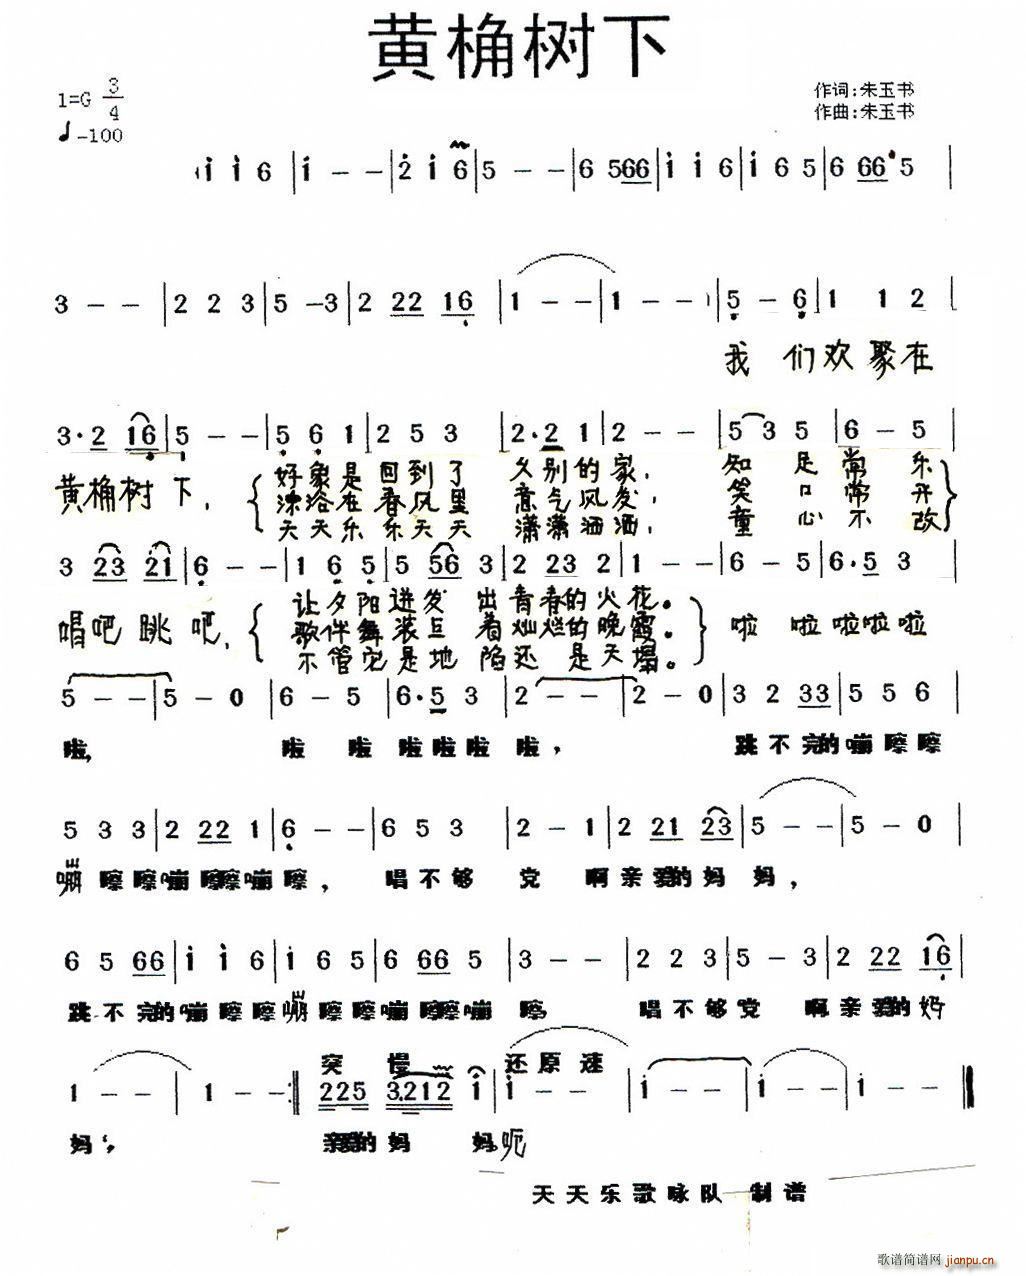 黄桷树下
1=G 3/4
作词:朱玉书
♩-100
作曲:朱玉书
i i 6 | i - - | 2 i 6 | 5 - - | 6 5 66 | i i 6 | i 6 5 | 6 66 5 |
3 - - | 2 2 3 | 5 -3 | 2 22 16 | 1 - - | 1 - - | 5 - 6 | 1 1 2 |
我 们欢聚在
3·2 16 | 5 - - | 5 6 1 | 2 5 3 | 2·2 1 | 2 - - | 5 3 5 | 6 - 5 |
黄桷树下,
好象是回到了 久别的家, 知足常乐
沐浴在春风里 意气风发; 笑口常开
天天乐乐天天 潇潇洒洒; 童心不改
3 23 21 | 6 - - | 1 6 5 | 5 56 3 | 2 23 2 | 1 - - | 6 - 5 | 6·5 3 |
唱吧跳吧,
让夕阳迸发 出青春的火花。
歌伴舞装豆 着灿烂的晚霞。
不管它是地 陷还是天塌。
啦 啦啦啦啦
5 - - | 5 - 0 | 6 - 5 | 6·5 3 | 2 - - | 2 - 0 | 3 2 33 | 5 5 6 |
啦, 啦 啦 啦啦啦 啦, 跳不完的嘣嚓嚓
5 3 3 | 2 22 1 | 6 - - | 6 5 3 | 2 - 1 | 2 21 23 | 5 - - | 5 - 0 |
嘣嚓嚓嘣嚓嚓嘣嚓, 唱不够 党 啊亲爱的妈 妈,
6 5 66 | i i 6 | i 6 5 | 6 66 5 | 3 - - | 2 2 3 | 5 - 3 | 2 22 16 |
跳不完的嘣嚓嚓嘣嚓嚓嘣嚓嚓嘣 嚓, 唱不够党 啊亲爱的妈
突 慢 还原速
1 - - | 1 - - :| 225 3.212 i | i - - | i - - | i - - |
妈, 亲爱的妈 妈呃
天天乐歌咏队 制谱
歌谱简谱网 jianpu.cn